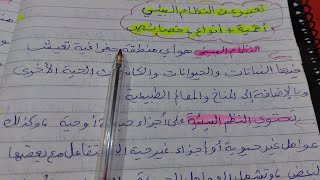 تعبير عن النظام البيئي
أهمية + أنواع + خصائصه
النظام البيئي هو أي منطقة جغرافية تعيش
فيها النباتات والحيوانات والكائنات الحية الأخرى
وبالإضافة إلى المناخ والمعالم الطبيعية
يحتوي النظم البيئية على أجزاء حيوية أو حية، وكذلك
عوامل غير حيوية أو أجزاء غير حية تتفاعل مع بعضها
البعض، وتشمل العوامل الحية